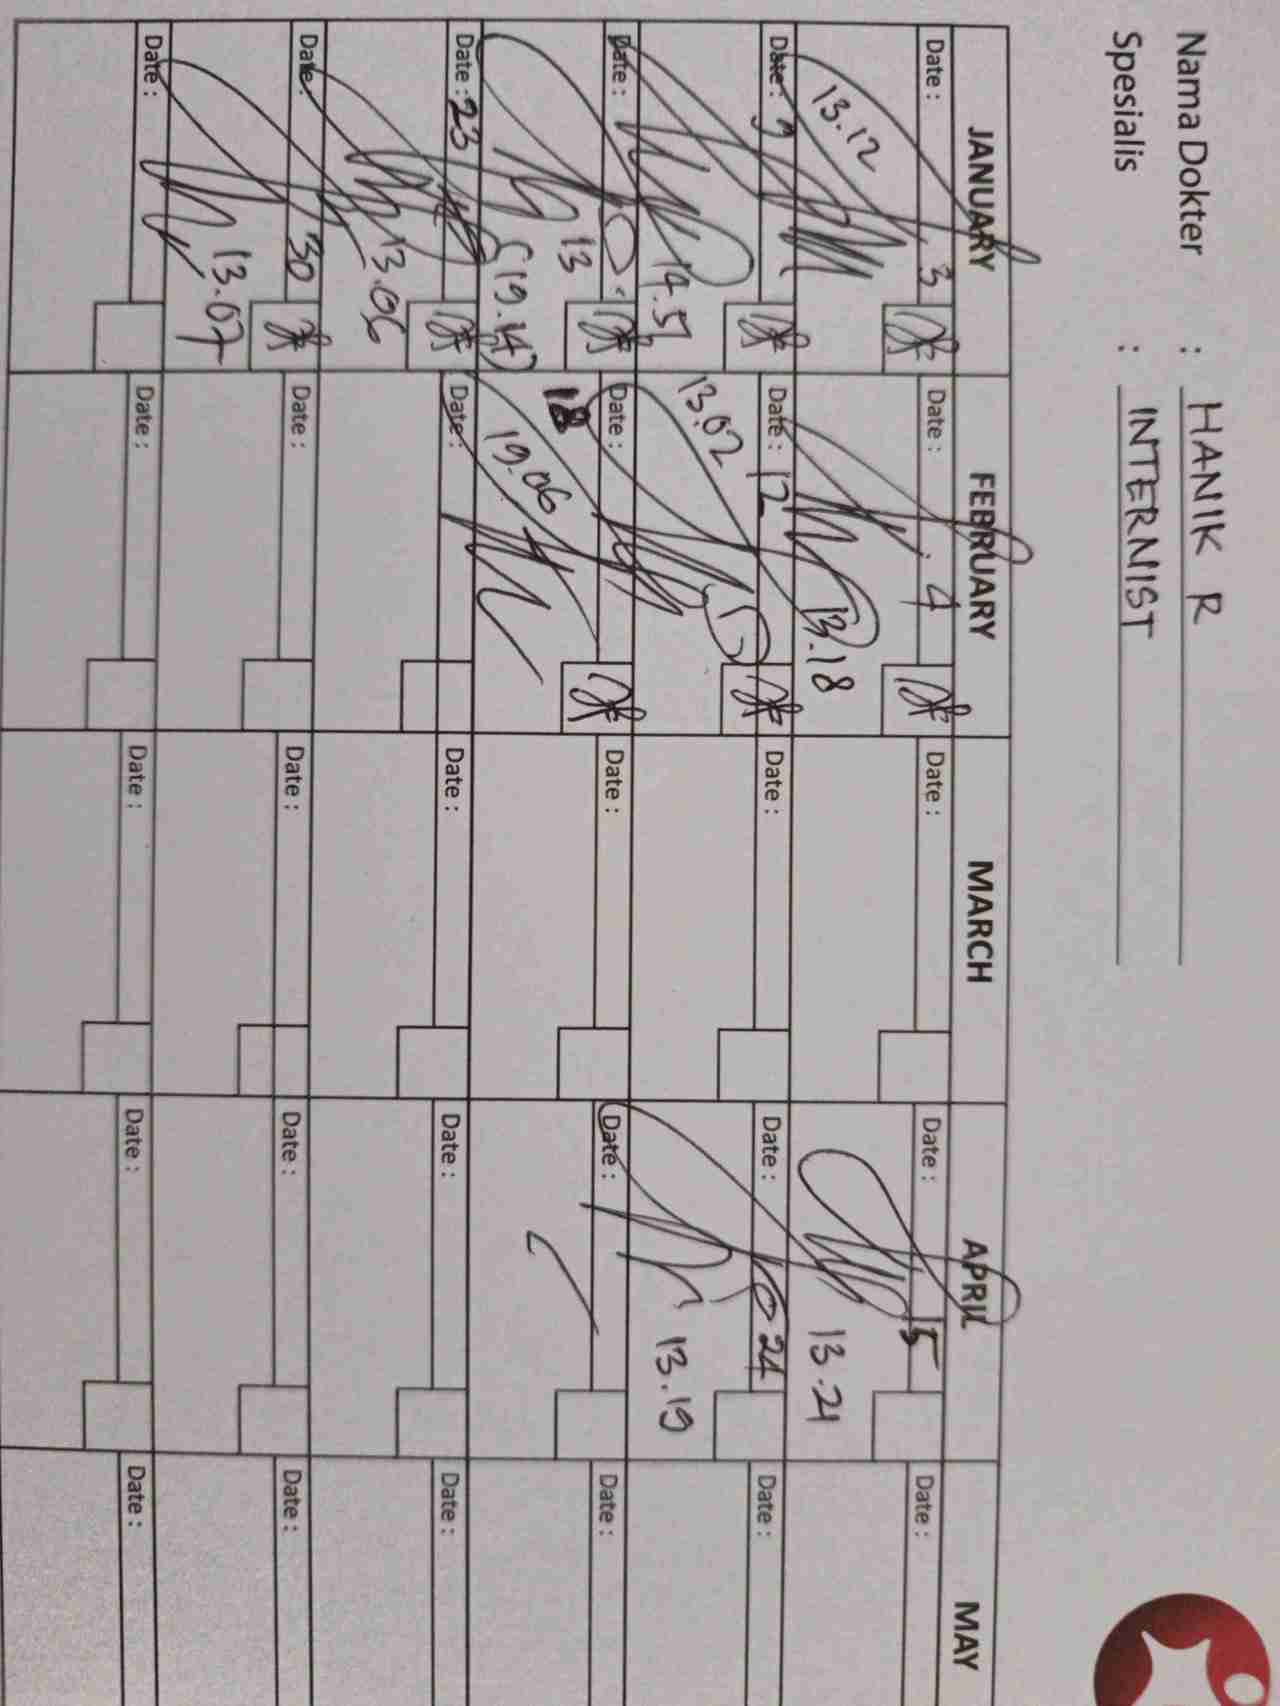 Nama Dokter : HANIK R
Spesialis : INTERNIST
JANUARY FEBRUARY MARCH APRIL MAY
Date : 3 Date : 4 Date : Date : 15 Date :
13.12 13.18 13.21
Date : 9 Date : 12 Date : Date : 24 Date :
14.51 13.02 13.19
Date : 13 Date : 18 Date : Date : Date :
(19.14) 19.06
Date : 23 Date : Date : Date : Date :
13.06
Date : 30 Date : Date : Date : Date :
13.07
Date : Date : Date : Date : Date :